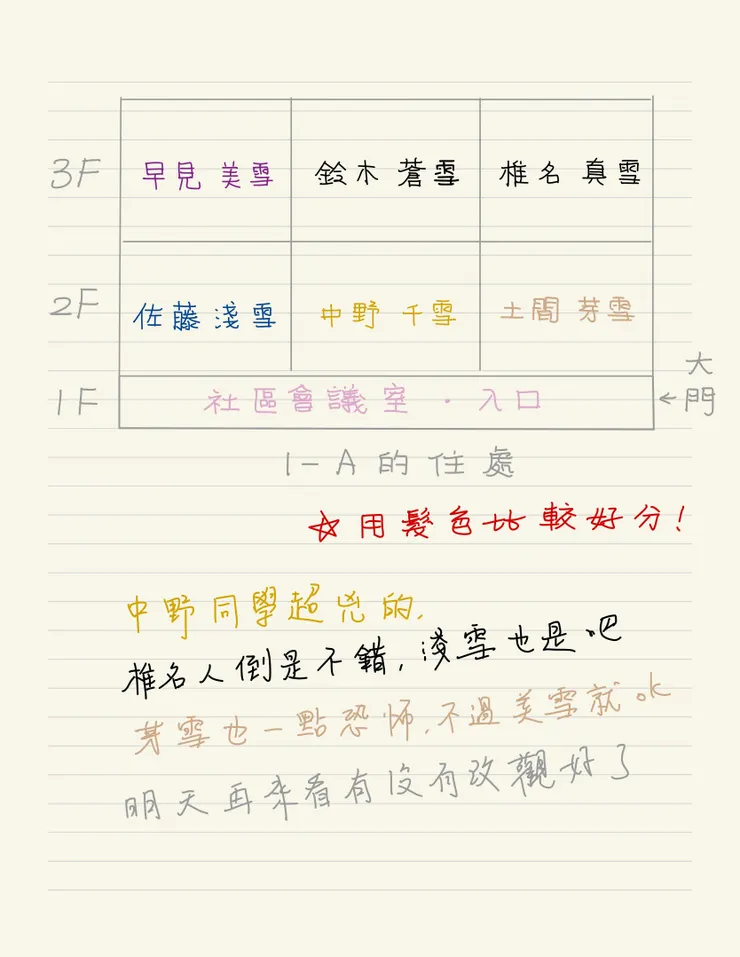 3F 早見 美雪 鈴木 蒼雪 椎名 真雪
2F 佐藤 淺雪 中野 千雪 土間 芽雪
1F 社區會議室・入口 ← 大門
1-A 的住處
☆用髮色比較好分!
中野同學超兇的,
椎名人倒是不錯,淺雪也是吧
芽雪也一點恐怖,不過美雪就ok
明天再來看有沒有改觀好了